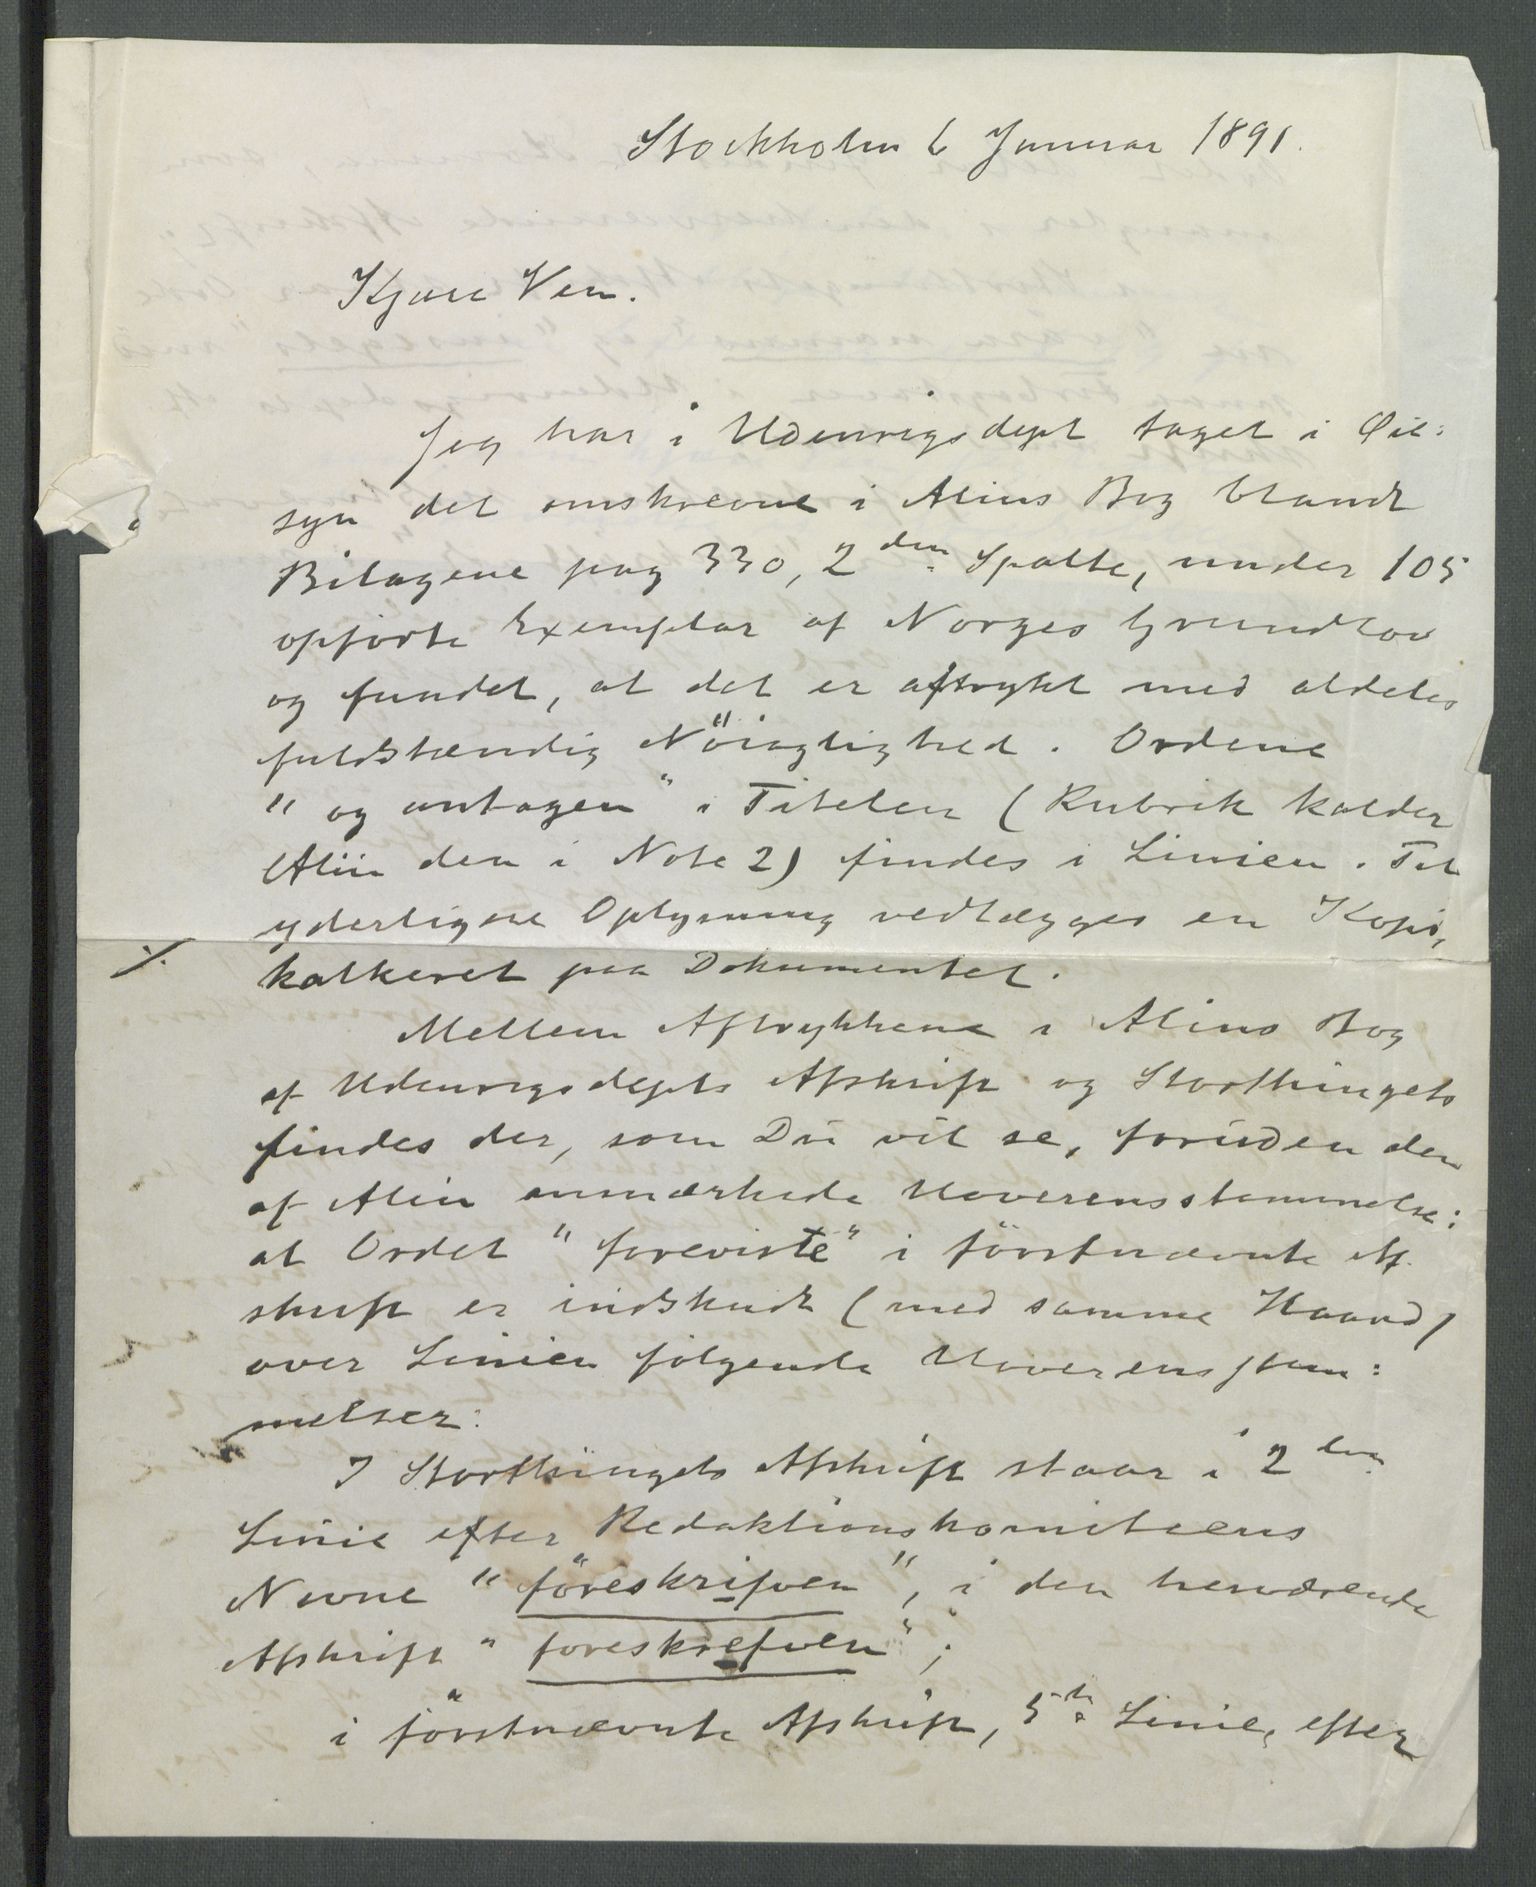 Stockholm 6 Januar 1891.
Kjære Ven.
Jeg har i Udenrigsdept taget i Øie:
syn det omskrevne i Alins Bog blandt
Bilagene pag 330, 2den Spalte, under 105
opførte Exemplar af Norges Grundlov
og fundet, at det er aftrykt med aldeles
fuldstændig Nöiagtighed. Ordene
"og antagen" i Titelen (Rubrik kalder
Alin den i Note 2) findes i Linien. Til
yderligere Oplysning vedlægges en Kopi,
./. kalkeret paa Dokumentet.
Mellem Aftrykkene i Alins Bog
af Udenrigsdepts Afskrift og Storthingets
findes der, som Du vil se, foruden den
af Alin anmærkede Uoverensstemmelse:
at Ordet "foreviste" i förstnævnte Af
skrift er indskudt (med samme Haand)
over Linien følgende Uoverensstem:
melser:
I Storthingets Afskrift staar i 2den
Linie efter Redaktionskomiteens
Navne "föreskrifven", i den herværende
Afskrift "foreskrefven";
i förstnævnte Afskrift, 5te Linie, efter